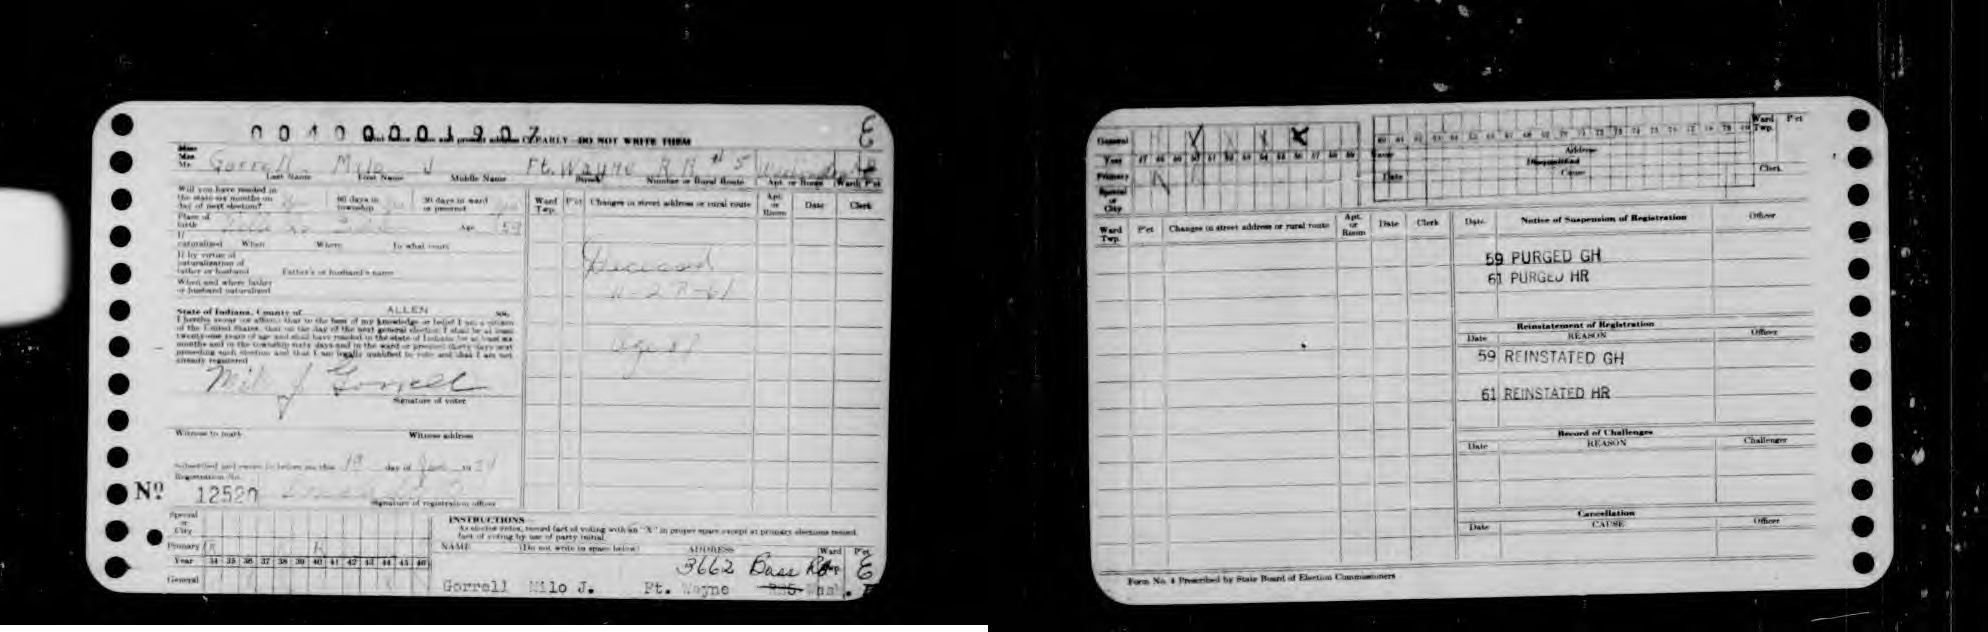 0040 0001907
CLEARLY—DO NOT WRITE THEM
Miss
Mrs.
Mr. Gorrell Milo J Ft. Wayne R R #5
Last Name First Name Middle Name Street Number or Rural Route Apt. or Room Ward P'ct
Will you have resided in
the state six months on
day of next election?
60 days in
township
30 days in ward
or precinct
Place of
birth
Age 59
If
naturalized When Where In what court
If by virtue of
naturalization of
father or husband Father's or husband's name
When and where father
or husband naturalized
State of Indiana, County of ALLEN ss.
I hereby swear (or affirm) that to the best of my knowledge or belief I am a citizen
of the United States, that on the day of the next general election I shall be at least
twenty-one years of age and shall have resided in the state of Indiana for at least six
months and in the township sixty days and in the ward or precinct thirty days next
preceding such election and that I am legally qualified to vote and that I am not
already registered
Milo J Gorrell
Signature of voter
Witness to mark Witness address
Subscribed and sworn to before me this 19 day of Jan 1934
Registration No.
No 12520
Signature of registration officer
Ward
Twp.
P'ct
Changes in street address or rural route
Apt.
or
Room
Date
Clerk
Deceased
11-28-61
age 87
Special
or
City
Primary R R
Year 34 35 36 37 38 39 40 41 42 43 44 45 46
General
INSTRUCTIONS
As elector votes, record fact of voting with an "X" in proper space except at primary elections record
fact of voting by use of party initial.
NAME (Do not write in space below) ADDRESS Ward P'ct
3662 Bass Rd E
Gorrell Milo J. Ft. Wayne RR5 Wash.
General
Year 47 48 49 50 51 52 53 54 55 56 57 58 59
Primary
Special
or
City
60 61 62 63 64 65 66 67 68 69 70 71 72 73 74 75 76 77 78 79 80
Ward
Twp.
P'ct
Name Address
Disqualified
Date Cause
Clerk
Ward
Twp.
P'ct
Changes in street address or rural route
Apt.
or
Room
Date
Clerk
Date Notice of Suspension of Registration Officer
59 PURGED GH
61 PURGED HR
Reinstatement of Registration
Date REASON Officer
59 REINSTATED GH
61 REINSTATED HR
Record of Challenges
Date REASON Challenger
Cancellation
Date CAUSE Officer
Form No. 4 Prescribed by State Board of Election Commissioners